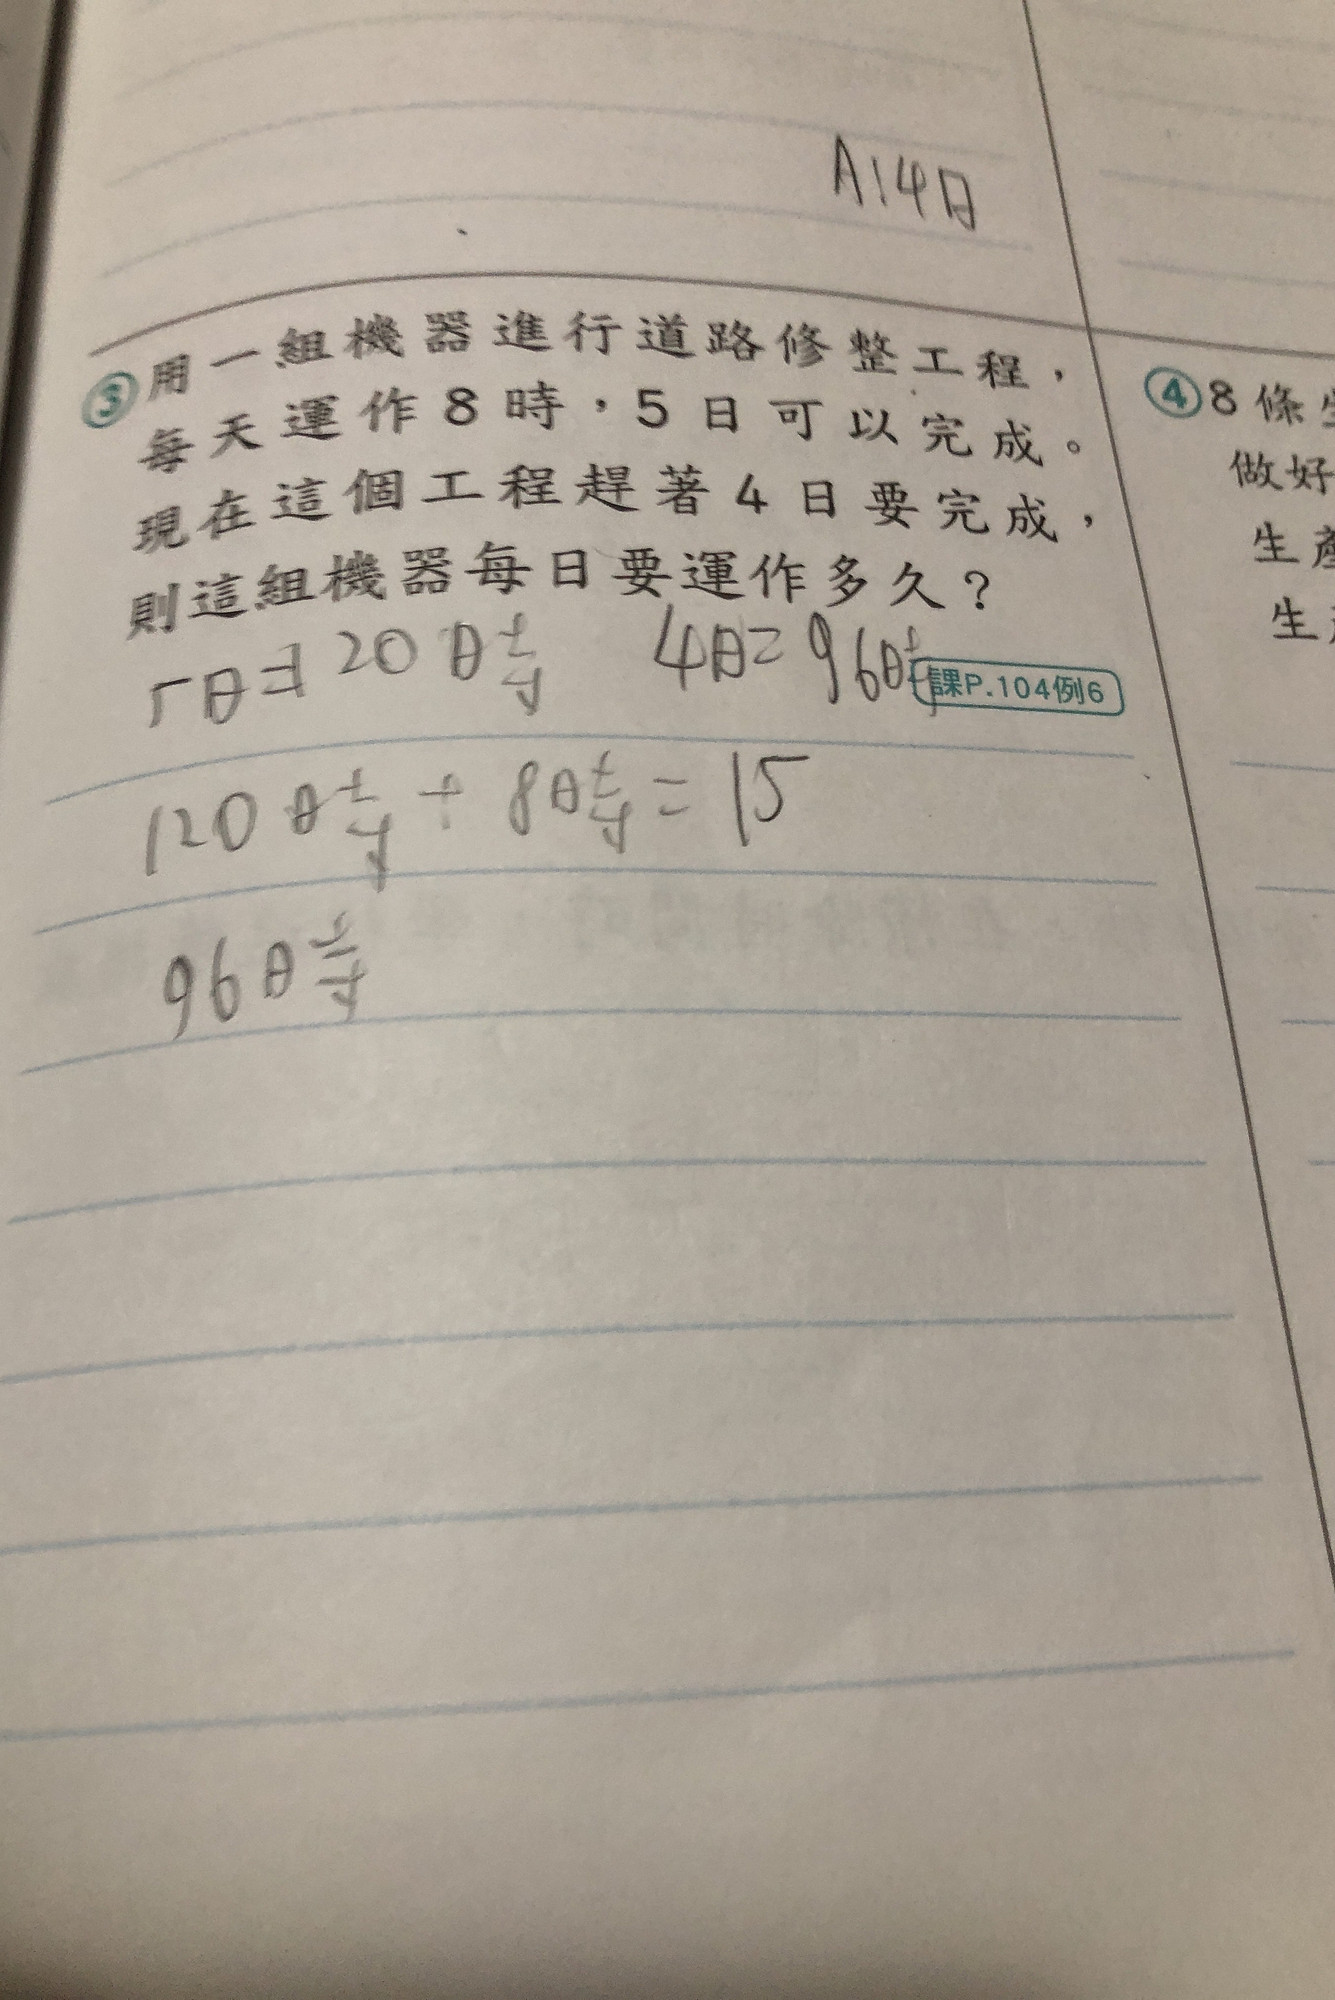 A14日
③用一組機器進行道路修整工程，
每天運作8時，5日可以完成。
現在這個工程趕著4日要完成，
則這組機器每日要運作多久？
5日=120時 4日=96時
課P.104例6
120時÷8時=15
96時
④8條
做好
生產
生